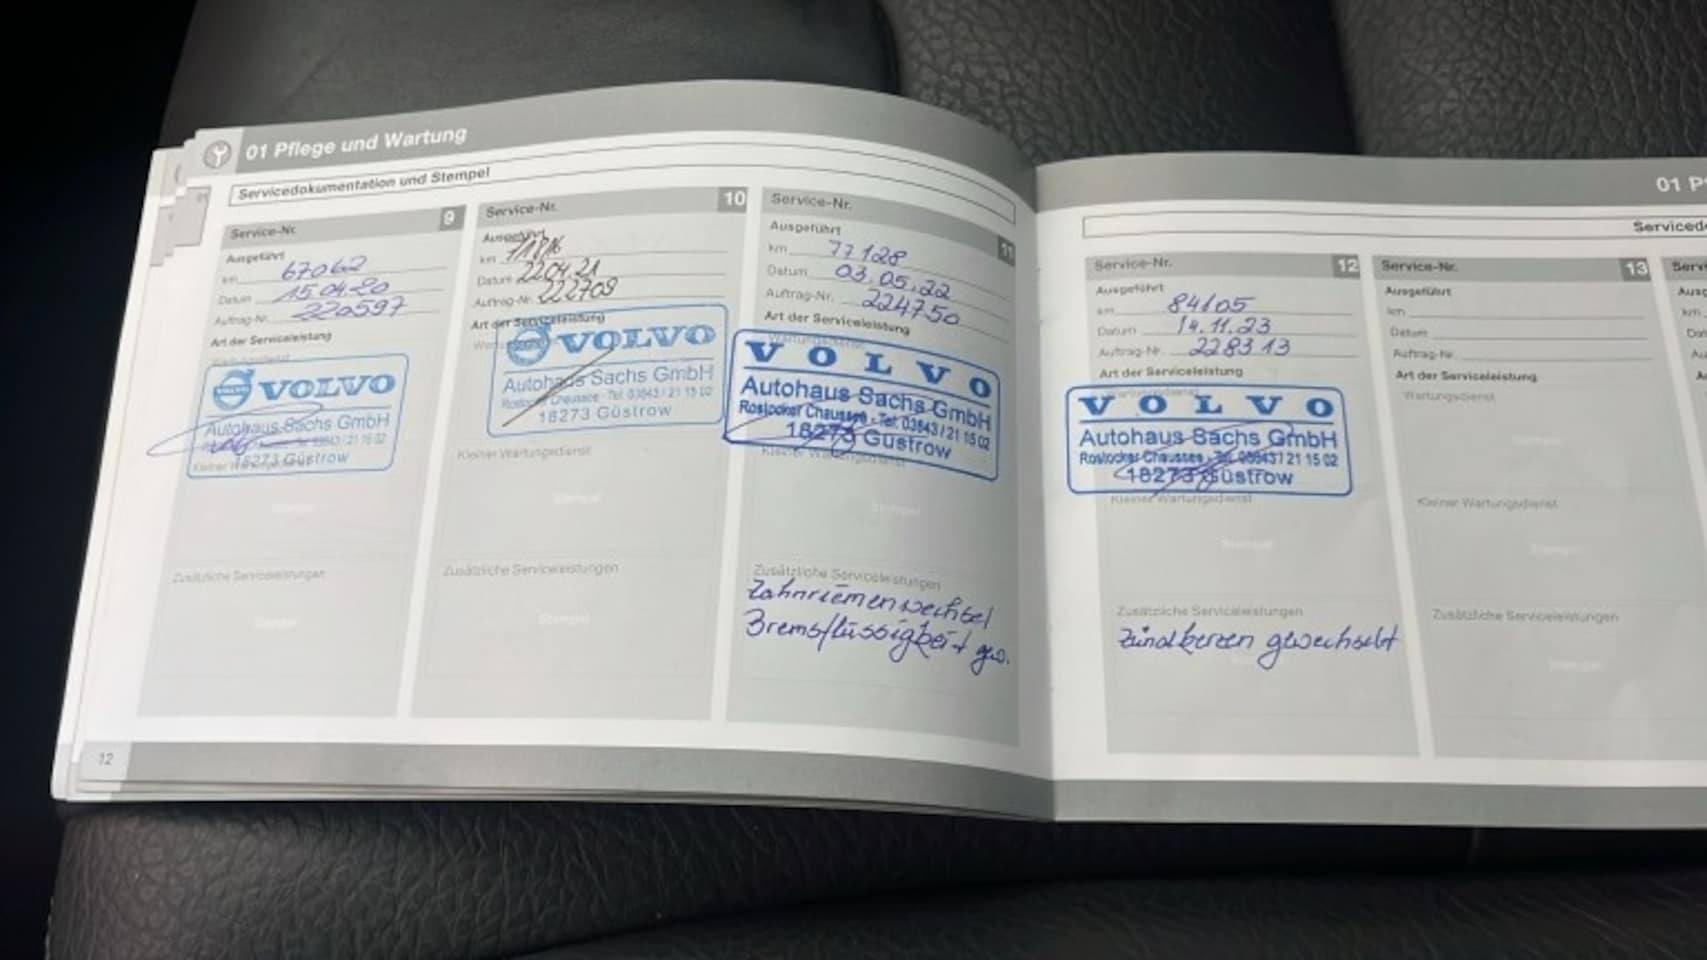 01 Pflege und Wartung
Servicedokumentation und Stempel
Service-Nr. 9
Ausgeführt
km 67062
Datum 15.04.20
Auftrag-Nr. 220597
Art der Serviceleistung
Wartungsdienst
VOLVO
Autohaus Sachs GmbH
03843/21 15 02
18273 Güstrow
Kleiner
Stempel
Zusätzliche Serviceleistungen
Stempel
Service-Nr. 10
Ausgeführt
km 71816
Datum 22.04.21
Auftrag-Nr. 222709
Art der Serviceleistung
VOLVO
Autohaus Sachs GmbH
Rostocker Chaussee - Tel. 03843/21 15 02
18273 Güstrow
Kleiner Wartungsdienst
Stempel
Zusätzliche Serviceleistungen
Stempel
Service-Nr. 11
Ausgeführt
km 77128
Datum 03.05.22
Auftrag-Nr. 224750
Art der Serviceleistung
Wartungsdienst
VOLVO
Autohaus Sachs GmbH
Rostocker Chaussee - Tel. 03843/21 15 02
18273 Güstrow
Kleiner Wartungsdienst
Stempel
Zusätzliche Serviceleistungen
Zahnriemenwechsel
Bremsflüssigkeit gw.
12
01 P
Serviced
Service-Nr. 12
Ausgeführt
km 84105
Datum 14.11.23
Auftrag-Nr. 228313
Art der Serviceleistung
Wartungsdienst
VOLVO
Autohaus Sachs GmbH
Rostocker Chaussee - Tel. 03843/21 15 02
18273 Güstrow
Kleiner Wartungsdienst
Stempel
Zusätzliche Serviceleistungen
Zündkerzen gewechselt
Service-Nr. 13
Ausgeführt
km
Datum
Auftrag-Nr.
Art der Serviceleistung
Wartungsdienst
Stempel
Kleiner Wartungsdienst
Stempel
Zusätzliche Serviceleistungen
Stempel